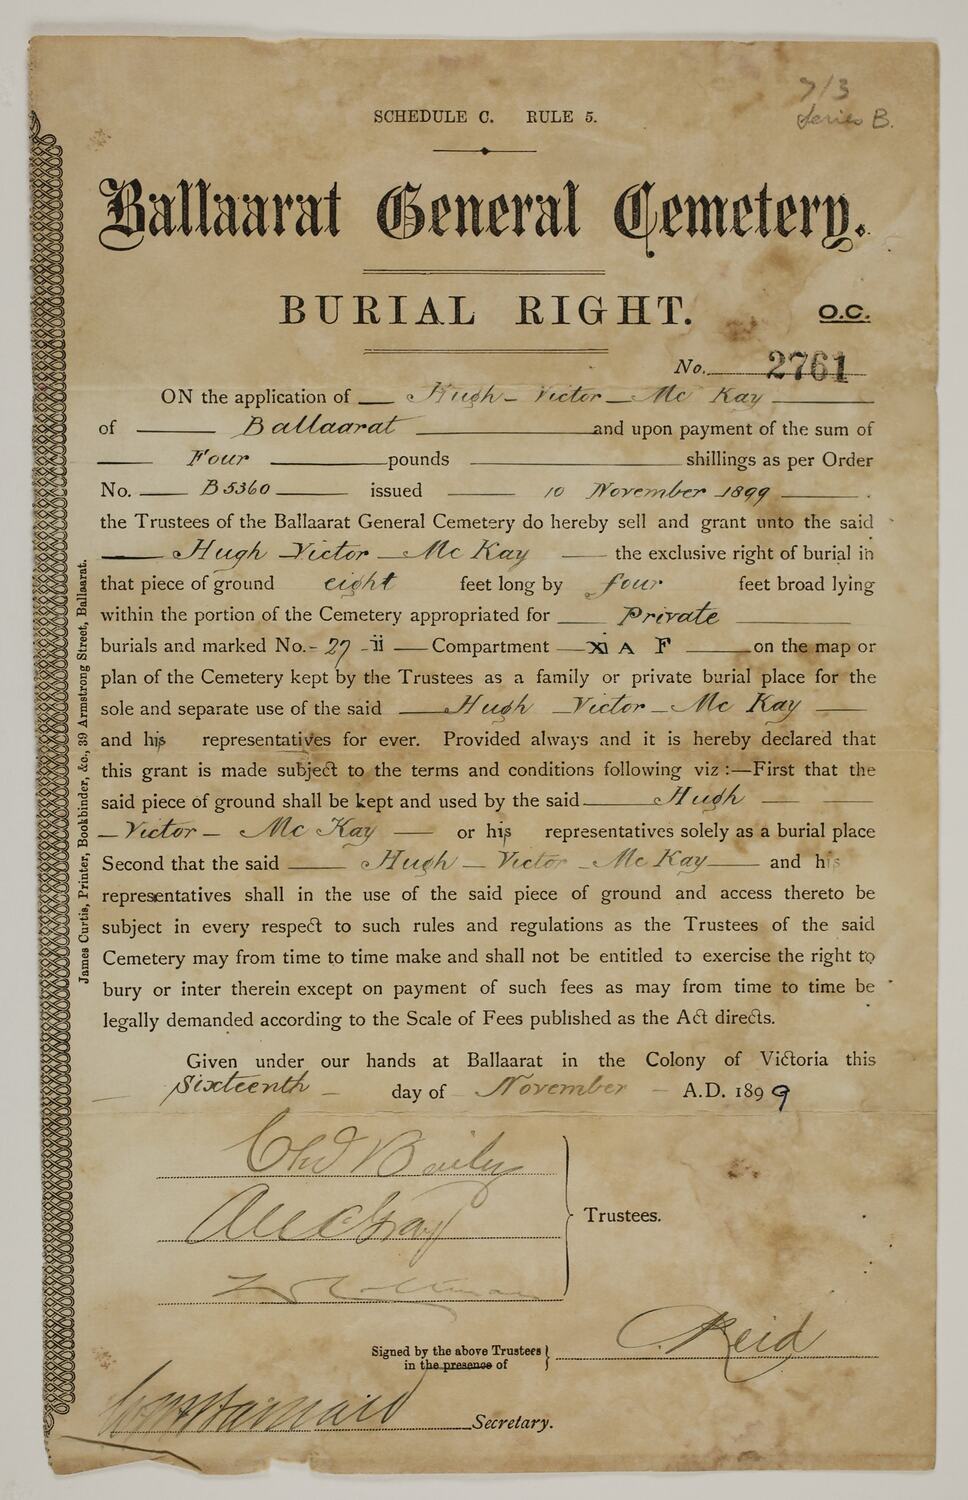 7/3
Series B.
SCHEDULE C. RULE 5.
Ballaarat General Cemetery.
BURIAL RIGHT.
O.C.
No. 2761
ON the application of Hugh Victor Mc Kay
of Ballaarat and upon payment of the sum of
Four pounds shillings as per Order
No. B5360 issued 10 November 1899 .
the Trustees of the Ballaarat General Cemetery do hereby sell and grant unto the said
Hugh Victor Mc Kay the exclusive right of burial in
that piece of ground eight feet long by four feet broad lying
within the portion of the Cemetery appropriated for Private
burials and marked No. 27 ii Compartment XI A F on the map or
plan of the Cemetery kept by the Trustees as a family or private burial place for the
sole and separate use of the said Hugh Victor Mc Kay
and his representatives for ever. Provided always and it is hereby declared that
this grant is made subject to the terms and conditions following viz :—First that the
said piece of ground shall be kept and used by the said Hugh
Victor Mc Kay or his representatives solely as a burial place
Second that the said Hugh Victor Mc Kay and his
representatives shall in the use of the said piece of ground and access thereto be
subject in every respect to such rules and regulations as the Trustees of the said
Cemetery may from time to time make and shall not be entitled to exercise the right to
bury or inter therein except on payment of such fees as may from time to time be
legally demanded according to the Scale of Fees published as the Act directs.
Given under our hands at Ballaarat in the Colony of Victoria this
Sixteenth day of November A.D. 1899
Bailey
Gray
Trustees.
Signed by the above Trustees
in the presence of
Reid
Secretary.
James Curtis, Printer, Bookbinder, &c., 39 Armstrong Street, Ballaarat.